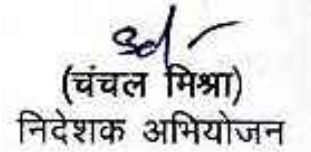 Sd/-
(चंचल मिश्रा)
निदेशक अभियोजन